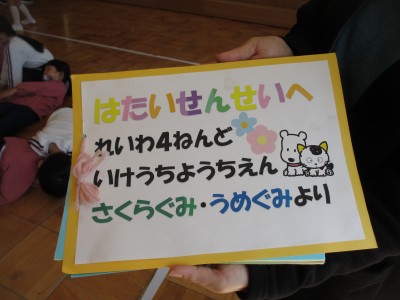 はたいせんせいへ
れいわ4ねんど
いけうちようちえん
さくらぐみ・うめぐみより